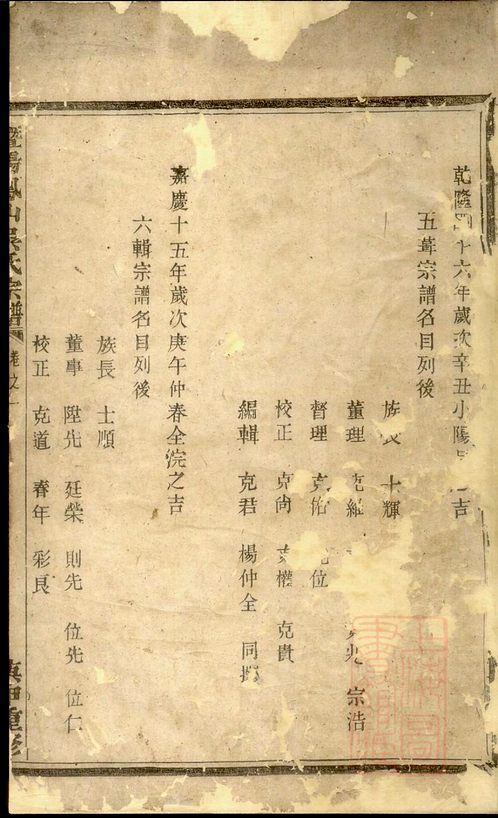 乾隆四十六年歲次辛丑小陽月 吉
五葺宗譜名目列後
族長 士輝
董理 克維 宗浩
督理 克佑 位
校正 克尚 克權 克貴
編輯 克君 楊仲全 同
嘉慶十五年歲次庚午仲春全浣之吉
六輯宗譜名目列後
族長 士順
董事 陞先 廷榮 則先 位先 位仁
校正 克道 春年 彩良
暨陽鳳山吳氏宗譜 卷之一 重修